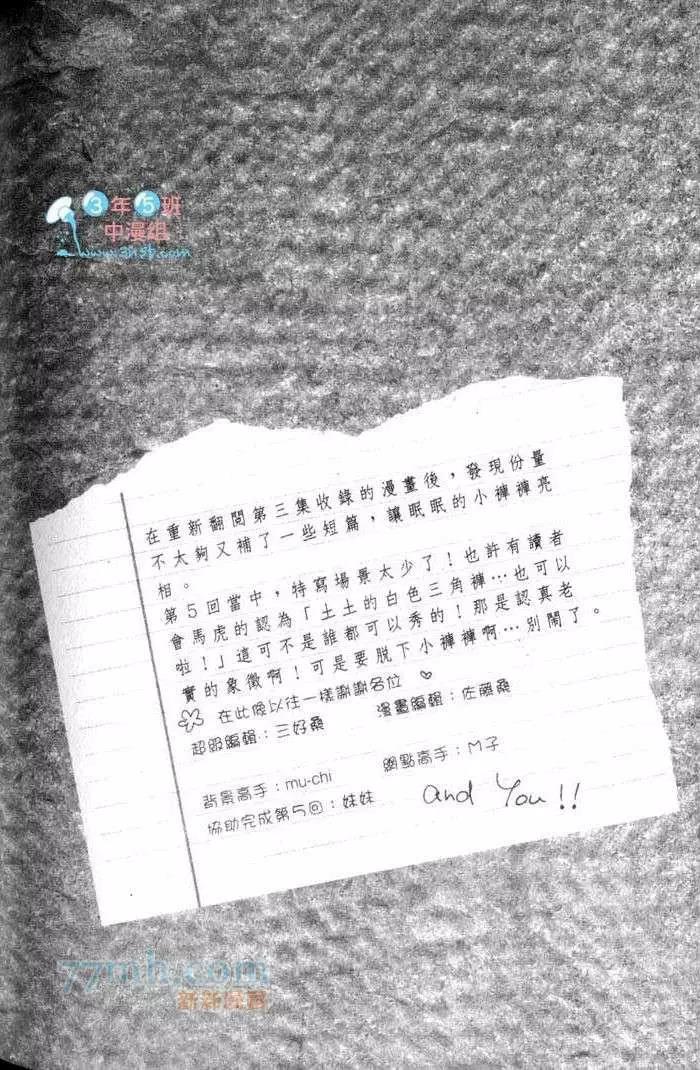 3年5班
中漫組
www.3n5b.com
在重新翻閱第三集收錄的漫畫後，發現份量
不太夠又補了一些短篇，讓眠眠的小褲褲亮
相。
第5回當中，特寫場景太少了！也許有讀者
會馬虎的認為「土土的白色三角褲…也可以
啦！」這可不是誰都可以秀的！那是認真老
實的象徵啊！可是要脫下小褲褲啊…別鬧了。
在此像以往一樣謝謝各位
超級編輯：三好桑 漫畫編輯：佐藤桑
背景高手：mu-chi 網點高手：M子
協助完成第5回：妹妹 and You!!
77mh.com
新新漫畫